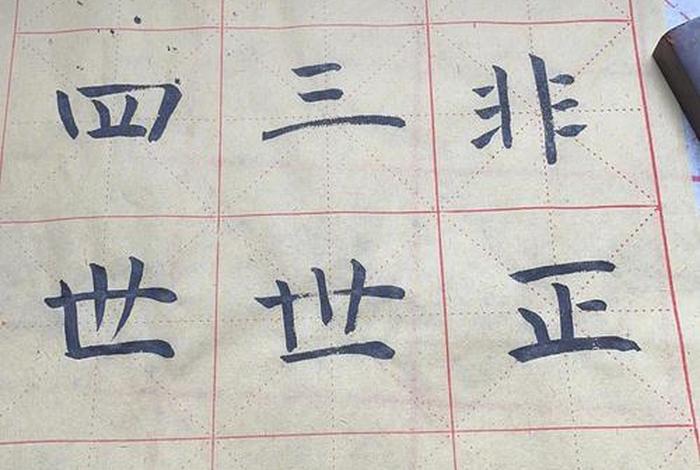 四三非
世世正